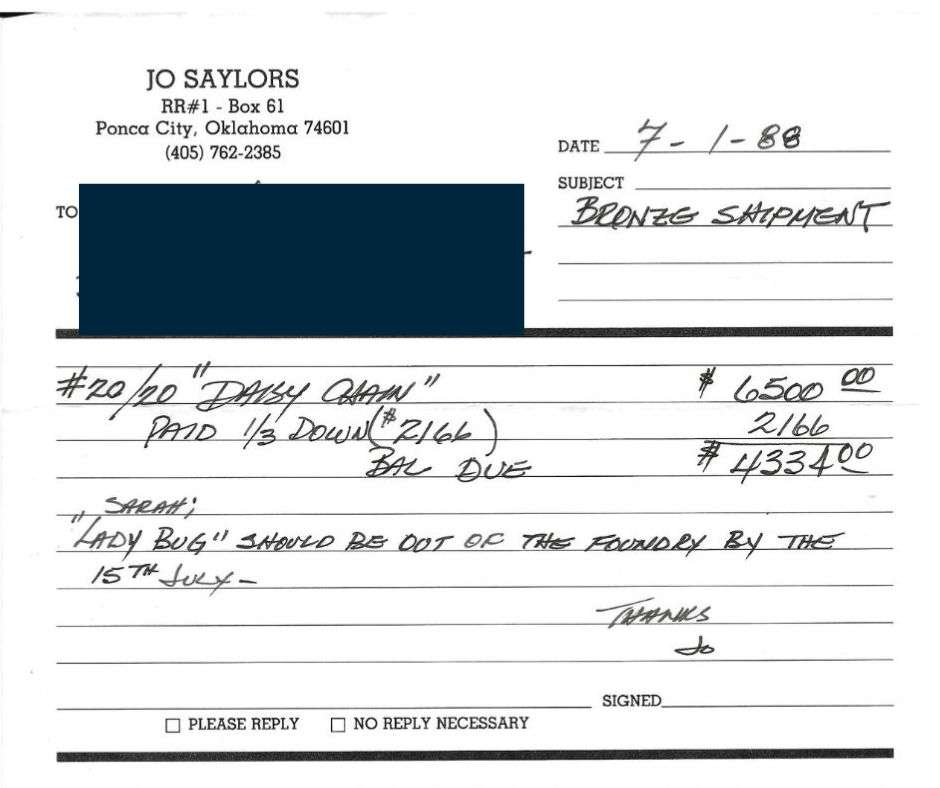 JO SAYLORS
RR#1 - Box 61
Ponca City, Oklahoma 74601
(405) 762-2385
DATE 7-1-88
SUBJECT
BRONZE SHIPMENT
TO
#20/20 "DAISY CHAIN" $ 6500 00
PAID 1/3 DOWN ($2166) 2166
BAL DUE $ 4334 00
SARAH;
"LADY BUG" SHOULD BE OUT OF THE FOUNDRY BY THE
15TH JULY-
THANKS
Jo
SIGNED
☐ PLEASE REPLY ☐ NO REPLY NECESSARY